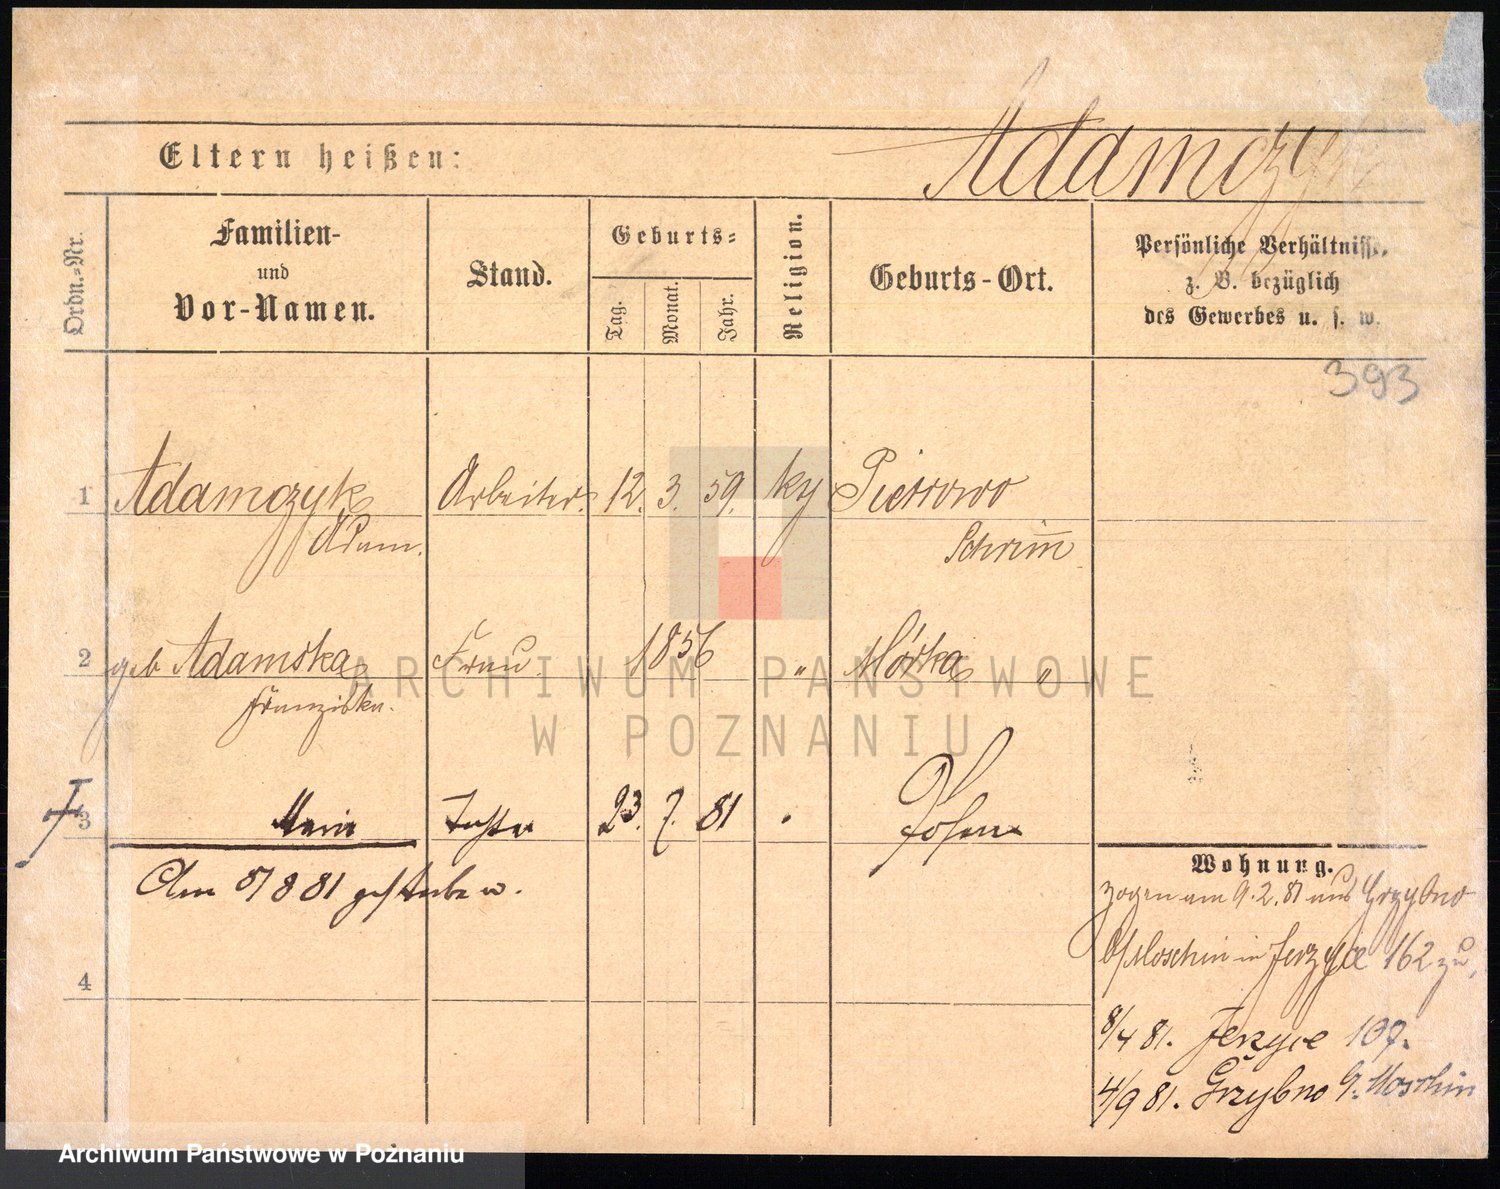 Adamczyk
Eltern heißen:
Ordn.-Nr.
Familien-
und
Vor-Namen.
Stand.
Geburts-
Tag.
Monat.
Jahr.
Religion.
Geburts-Ort.
Persönliche Verhältnisse,
z. B. bezüglich
des Gewerbes u. s. w.
393
1 Adamczyk Arbeiter. 12. 3. 59. ky
Adam. Schrimm
2 geb Adamska Frau. 1856 " Mórka "
Franziska.
3 Marie Tochter 23. 7. 81 Posen
Am 5/8 81 gestorben.
4
Wohnung.
zogen am 9. 2. 81 aus Grzybno
b/Moschin in Jerzyce 162 zu,
8/4 81. Jerzyce 107.
4/9 81. Grzybno b. Moschin
ARCHIWUM PAŃSTWOWE
W POZNANIU
Archiwum Państwowe w Poznaniu